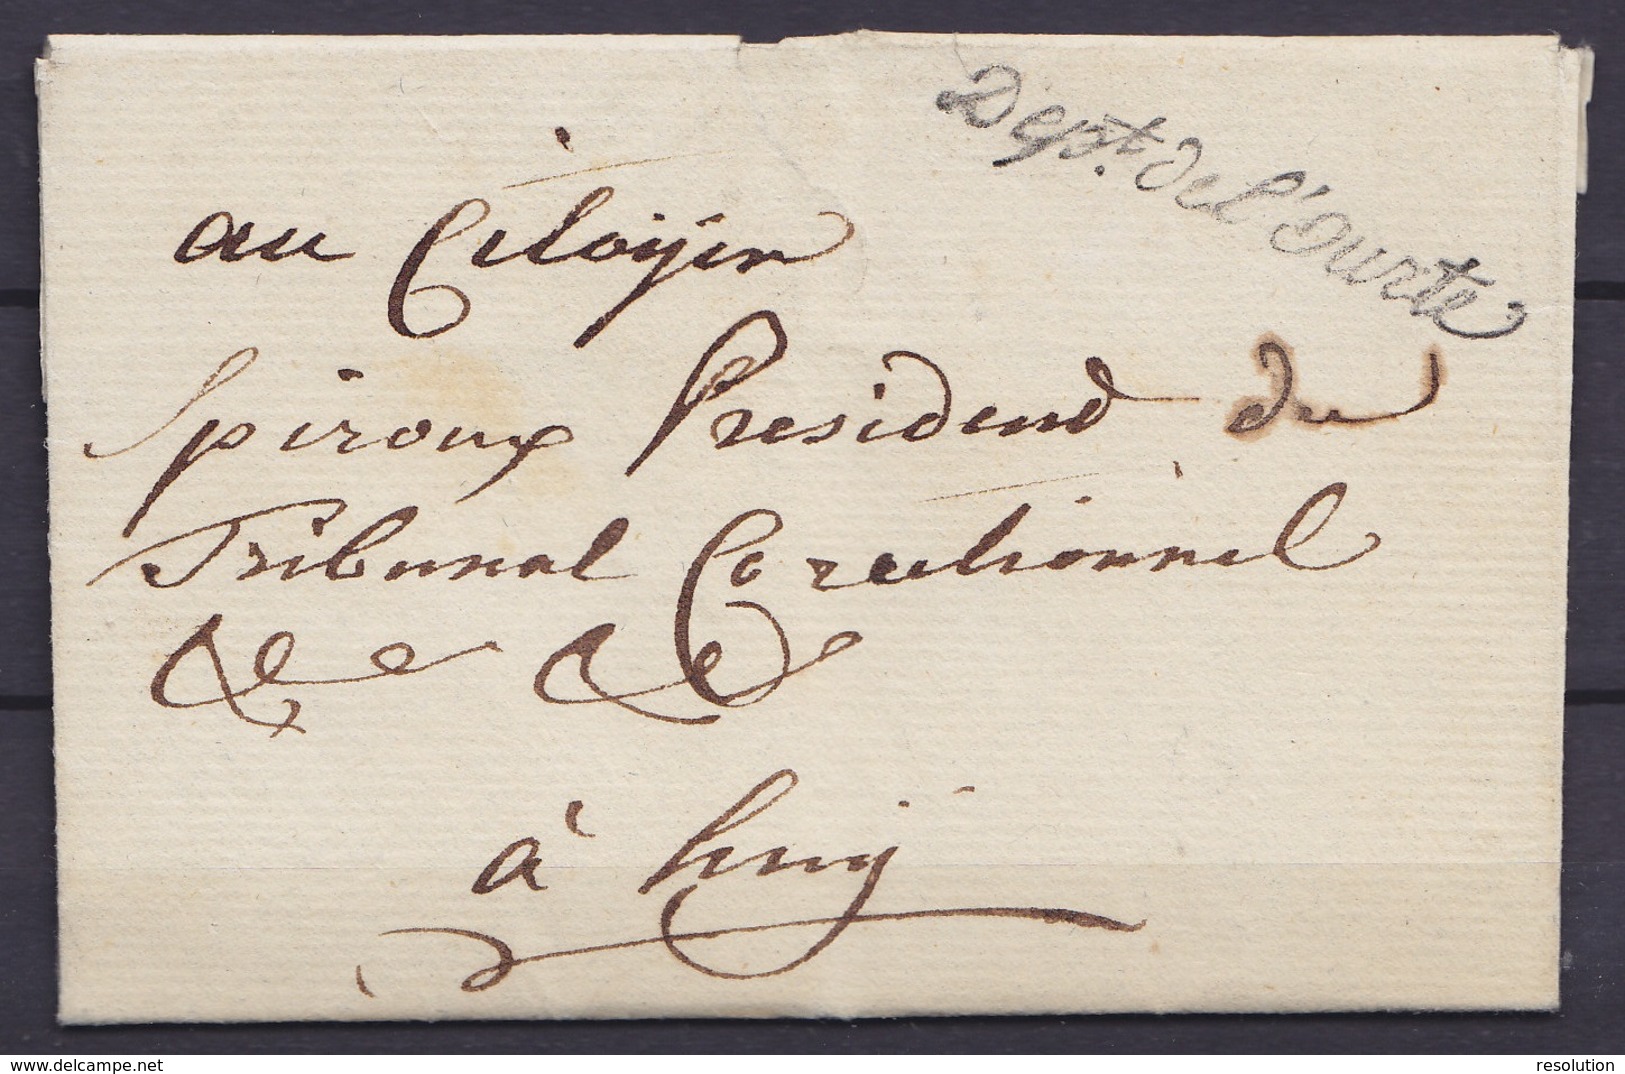 Dept. de l'Ourte
au Citoÿen
Spiroux President du
Tribunal Corectionnel
&e &e
à huÿ
delcampe.net
resolution